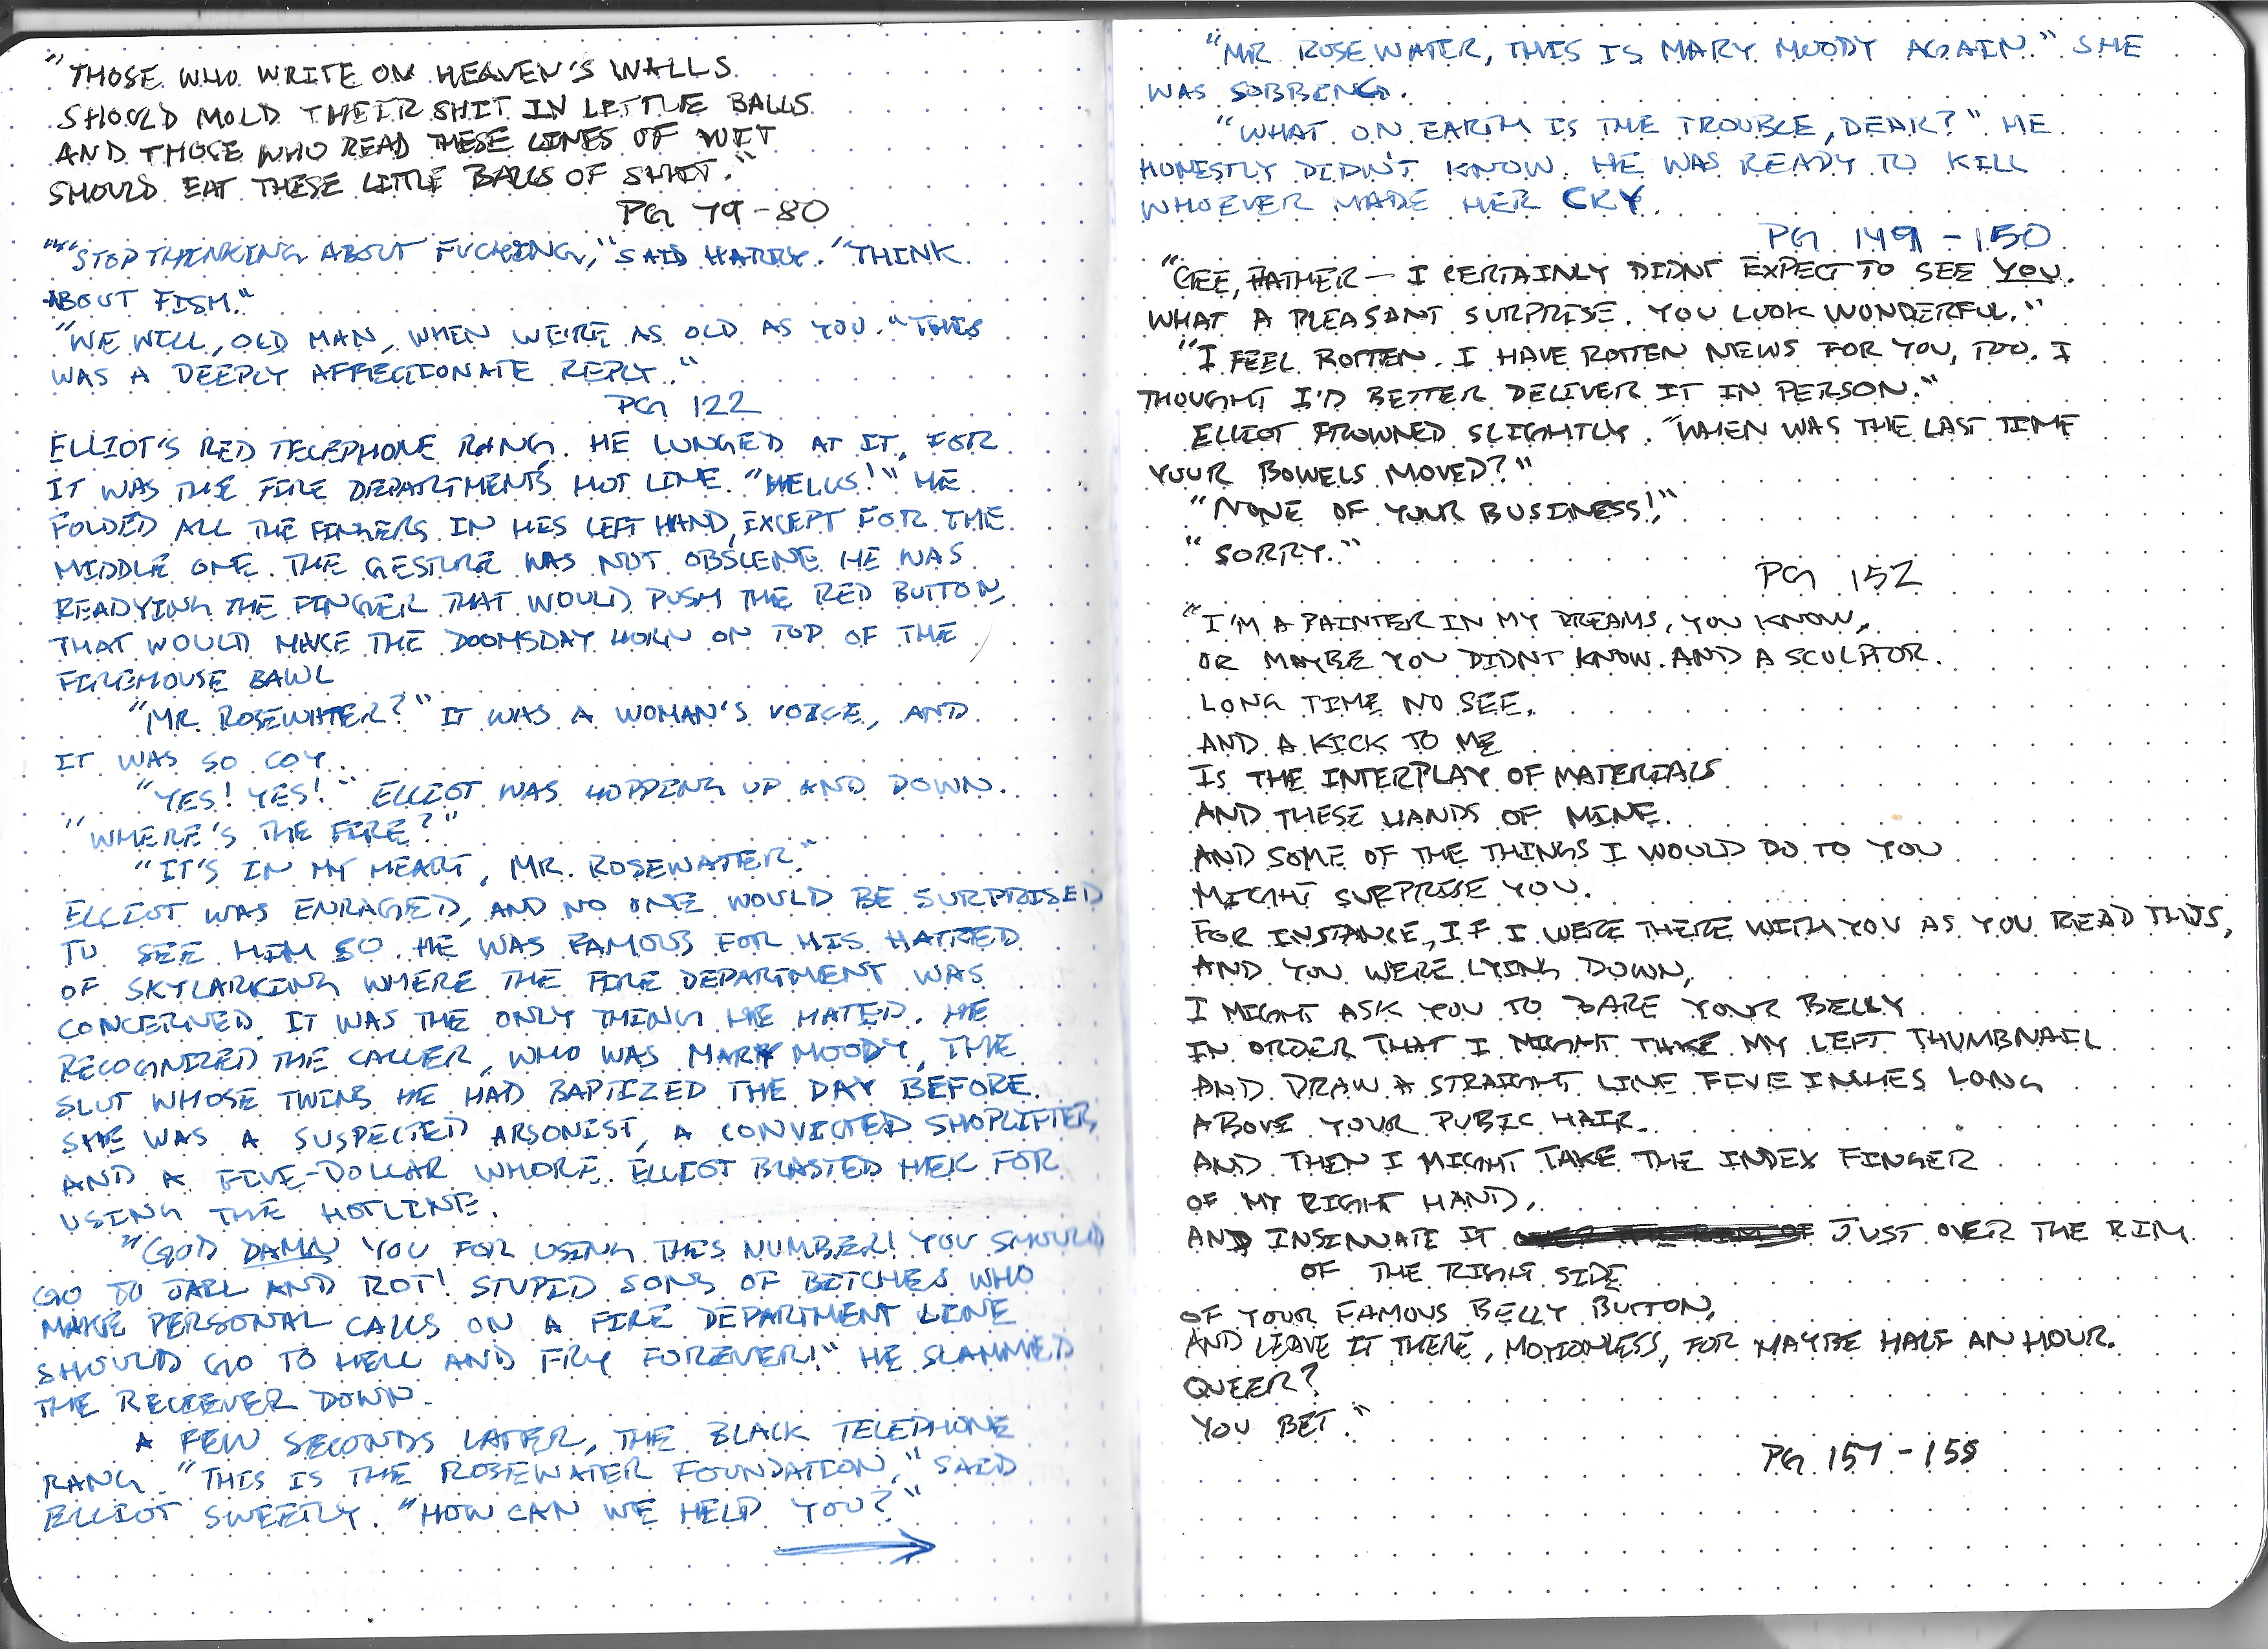 "THOSE WHO WRITE ON HEAVEN'S WALLS
SHOULD MOLD THEIR SHIT IN LITTLE BALLS
AND THOSE WHO READ THESE LINES OF WIT
SHOULD EAT THESE LITTLE BALLS OF SHIT."
PG 79-80
""STOP THINKING ABOUT FUCKING," SAID HARRY. "THINK
ABOUT FISH."
"WE WILL, OLD MAN, WHEN WE'RE AS OLD AS YOU." THIS
WAS A DEEPLY AFFECTIONATE REPLY."
PG 122
ELLIOT'S RED TELEPHONE RANG. HE LUNGED AT IT, FOR
IT WAS THE FIRE DEPARTMENT'S HOT LINE. "HELLO!" HE
FOLDED ALL THE FINGERS IN HIS LEFT HAND, EXCEPT FOR THE
MIDDLE ONE. THE GESTURE WAS NOT OBSCENE. HE WAS
READYING THE FINGER THAT WOULD PUSH THE RED BUTTON,
THAT WOULD MAKE THE DOOMSDAY HORN ON TOP OF THE
FIREHOUSE BAWL
"MR. ROSEWATER?" IT WAS A WOMAN'S VOICE, AND
IT WAS SO COY.
"YES! YES!" ELLIOT WAS HOPPING UP AND DOWN.
"WHERE'S THE FIRE?"
"IT'S IN MY HEART, MR. ROSEWATER."
ELLIOT WAS ENRAGED, AND NO ONE WOULD BE SURPRISED
TO SEE HIM SO. HE WAS FAMOUS FOR HIS HATRED
OF SKYLARKING WHERE THE FIRE DEPARTMENT WAS
CONCERNED. IT WAS THE ONLY THING HE HATED. HE
RECOGNIZED THE CALLER, WHO WAS MARY MOODY, THE
SLUT WHOSE TWINS HE HAD BAPTIZED THE DAY BEFORE.
SHE WAS A SUSPECTED ARSONIST, A CONVICTED SHOPLIFTER,
AND A FIVE-DOLLAR WHORE. ELLIOT BLASTED HER FOR
USING THE HOTLINE.
"GOD DAMN YOU FOR USING THIS NUMBER! YOU SHOULD
GO TO JAIL AND ROT! STUPID SONS OF BITCHES WHO
MAKE PERSONAL CALLS ON A FIRE DEPARTMENT LINE
SHOULD GO TO HELL AND FRY FOREVER!" HE SLAMMED
THE RECIEVER DOWN.
A FEW SECONDS LATER, THE BLACK TELEPHONE
RANG. "THIS IS THE ROSEWATER FOUNDATION," SAID
ELLIOT SWEETLY. "HOW CAN WE HELP YOU?"
"MR ROSEWATER, THIS IS MARY MOODY AGAIN." SHE
WAS SOBBING.
"WHAT ON EARTH IS THE TROUBLE, DEAR?" HE
HONESTLY DIDN'T KNOW. HE WAS READY TO KILL
WHOEVER MADE HER CRY.
PG 149-150
"GEE, FATHER — I CERTAINLY DIDNT EXPECT TO SEE YOU.
WHAT A PLEASANT SURPRISE. YOU LOOK WONDERFUL."
"I FEEL ROTTEN. I HAVE ROTTEN NEWS FOR YOU, TOO. I
THOUGHT I'D BETTER DELIVER IT IN PERSON."
ELLIOT FROWNED SLIGHTLY. "WHEN WAS THE LAST TIME
YOUR BOWELS MOVED?"
"NONE OF YOUR BUSINESS!"
"SORRY."
PG 152
"I'M A PAINTER IN MY DREAMS, YOU KNOW,
OR MAYBE YOU DIDNT KNOW. AND A SCULPTOR.
LONG TIME NO SEE.
AND A KICK TO ME
IS THE INTERPLAY OF MATERIALS
AND THESE HANDS OF MINE.
AND SOME OF THE THINGS I WOULD DO TO YOU
MIGHT SURPRISE YOU.
FOR INSTANCE, IF I WERE THERE WITH YOU AS YOU READ THIS,
AND YOU WERE LYING DOWN,
I MIGHT ASK YOU TO BARE YOUR BELLY
IN ORDER THAT I MIGHT TAKE MY LEFT THUMBNAIL
AND DRAW A STRAIGHT LINE FIVE INCHES LONG
ABOVE YOUR PUBIC HAIR.
AND THEN I MIGHT TAKE THE INDEX FINGER
OF MY RIGHT HAND,
AND INSINUATE IT JUST OVER THE RIM
OF THE RIGHT SIDE
OF YOUR FAMOUS BELLY BUTTON,
AND LEAVE IT THERE, MOTIONLESS, FOR MAYBE HALF AN HOUR.
QUEER?
YOU BET."
PG 157-158